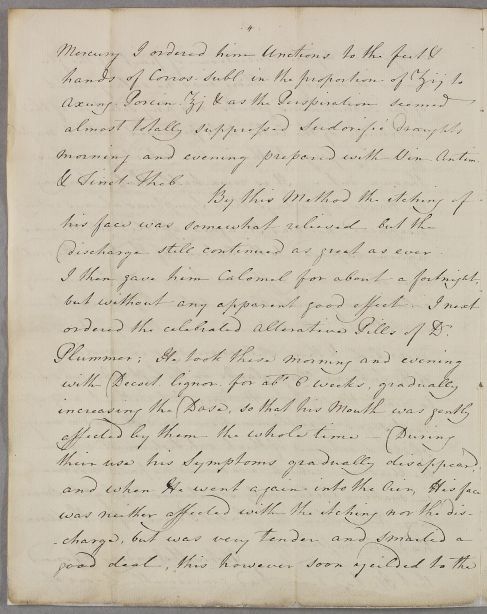 4
Mercury I ordered him Unctions to the feet &
hands of Corros. Subl. in the proportion of ʒij to
Axung. Porcin. ℥j & as the Perspiration seemed
almost totally suppressed Sudorific draughts
morning and evening prepared with Vin. Antim.
& Tinct. Theb.
By this Method the itching of
his face was somewhat relieved but the
Discharge still continued as great as ever
I then gave him Calomel for about a fortnight,
but without any apparent good effect. I next
ordered the celebrated alterative Pills of Dr.
Plummer; He took these morning and evening
with Decoct lignor. for abt. 6 weeks, gradually
increasing the Dose, so that his Mouth was gently
affected by them the whole time – During
their use his Symptoms gradually disappear'd,
and when He went again into the air, His face
was neither affected with the itching nor the dis-
-charge, but was very tender and smarted a
good deal, this however soon yeilded to the